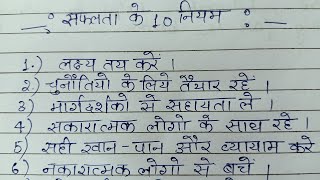 सफलता के 10 नियम
1.) लक्ष्य तय करें ।
2) चुनौतियो के लिये तैयार रहें ।
3) मार्गदर्शको से सहायता ले ।
4) सकारात्मक लोगो के साथ रहे ।
5) सही खान-पान और व्यायाम करे
6) नकारात्मक लोगो से बचें ।